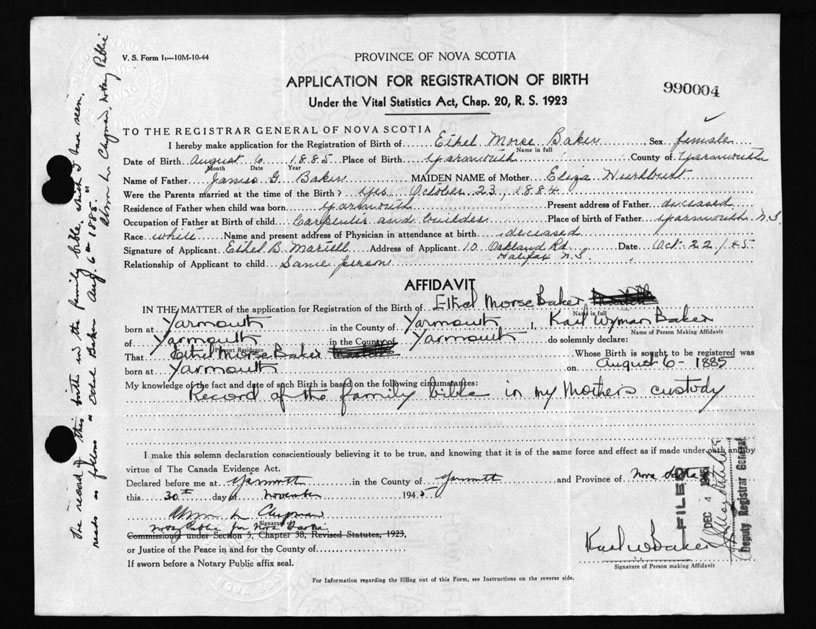 V. S. Form 1.—10M-10-44
PROVINCE OF NOVA SCOTIA
APPLICATION FOR REGISTRATION OF BIRTH
990004
Under the Vital Statistics Act, Chap. 20, R. S. 1923
TO THE REGISTRAR GENERAL OF NOVA SCOTIA
I hereby make application for the Registration of Birth of Ethel Morse Baker Sex female
Name in full
Date of Birth August 6 1885 Place of Birth Yarmouth County of Yarmouth
Month Date Year
Name of Father James G. Baker MAIDEN NAME of Mother Eliza Hurlburt
Were the Parents married at the time of Birth? Yes October 23, 1884
Residence of Father when child was born Yarmouth Present address of Father deceased
Occupation of Father at Birth of child Carpenter and builder Place of birth of Father Yarmouth N.S.
Race white Name and present address of Physician in attendance at birth deceased
Signature of Applicant Ethel B. Martell Address of Applicant 10 Oakland Rd. Date Oct 22/45
Halifax N.S.
Relationship of Applicant to child Same person
AFFIDAVIT
IN THE MATTER of the application for Registration of the Birth of Ethel Morse Baker
Name in full
born at Yarmouth in the County of Yarmouth I, Karl Wyman Baker
Name of Person Making Affidavit
of Yarmouth in the County of Yarmouth do solemnly declare:
That Ethel Morse Baker Whose Birth is sought to be registered was
born at Yarmouth on August 6 - 1885
My knowledge of the fact and date of such Birth is based on the following circumstances:
Record of the family bible in my Mothers custody
I make this solemn declaration conscientiously believing it to be true, and knowing that it is of the same force and effect as if made under oath and by
virtue of The Canada Evidence Act.
Declared before me at Yarmouth in the County of Yarmouth and Province of Nova Scotia
this 30th day of November 1945
Chapman
Signature of
Notary Public for Nova Scotia
Commissioned under Section 5, Chapter 38, Revised Statutes, 1923,
or Justice of the Peace in and for the County of
If sworn before a Notary Public affix seal.
Karl W Baker
Signature of Person making Affidavit
For Information regarding the filling out of this Form, see Instructions on the reverse side.
FILED
DEC 4 1945
Deputy Registrar General
The record of this birth in the family bible, which I have seen,
reads as follows "Ethel Baker Aug. 6th 1885."
Chapman, Notary Public